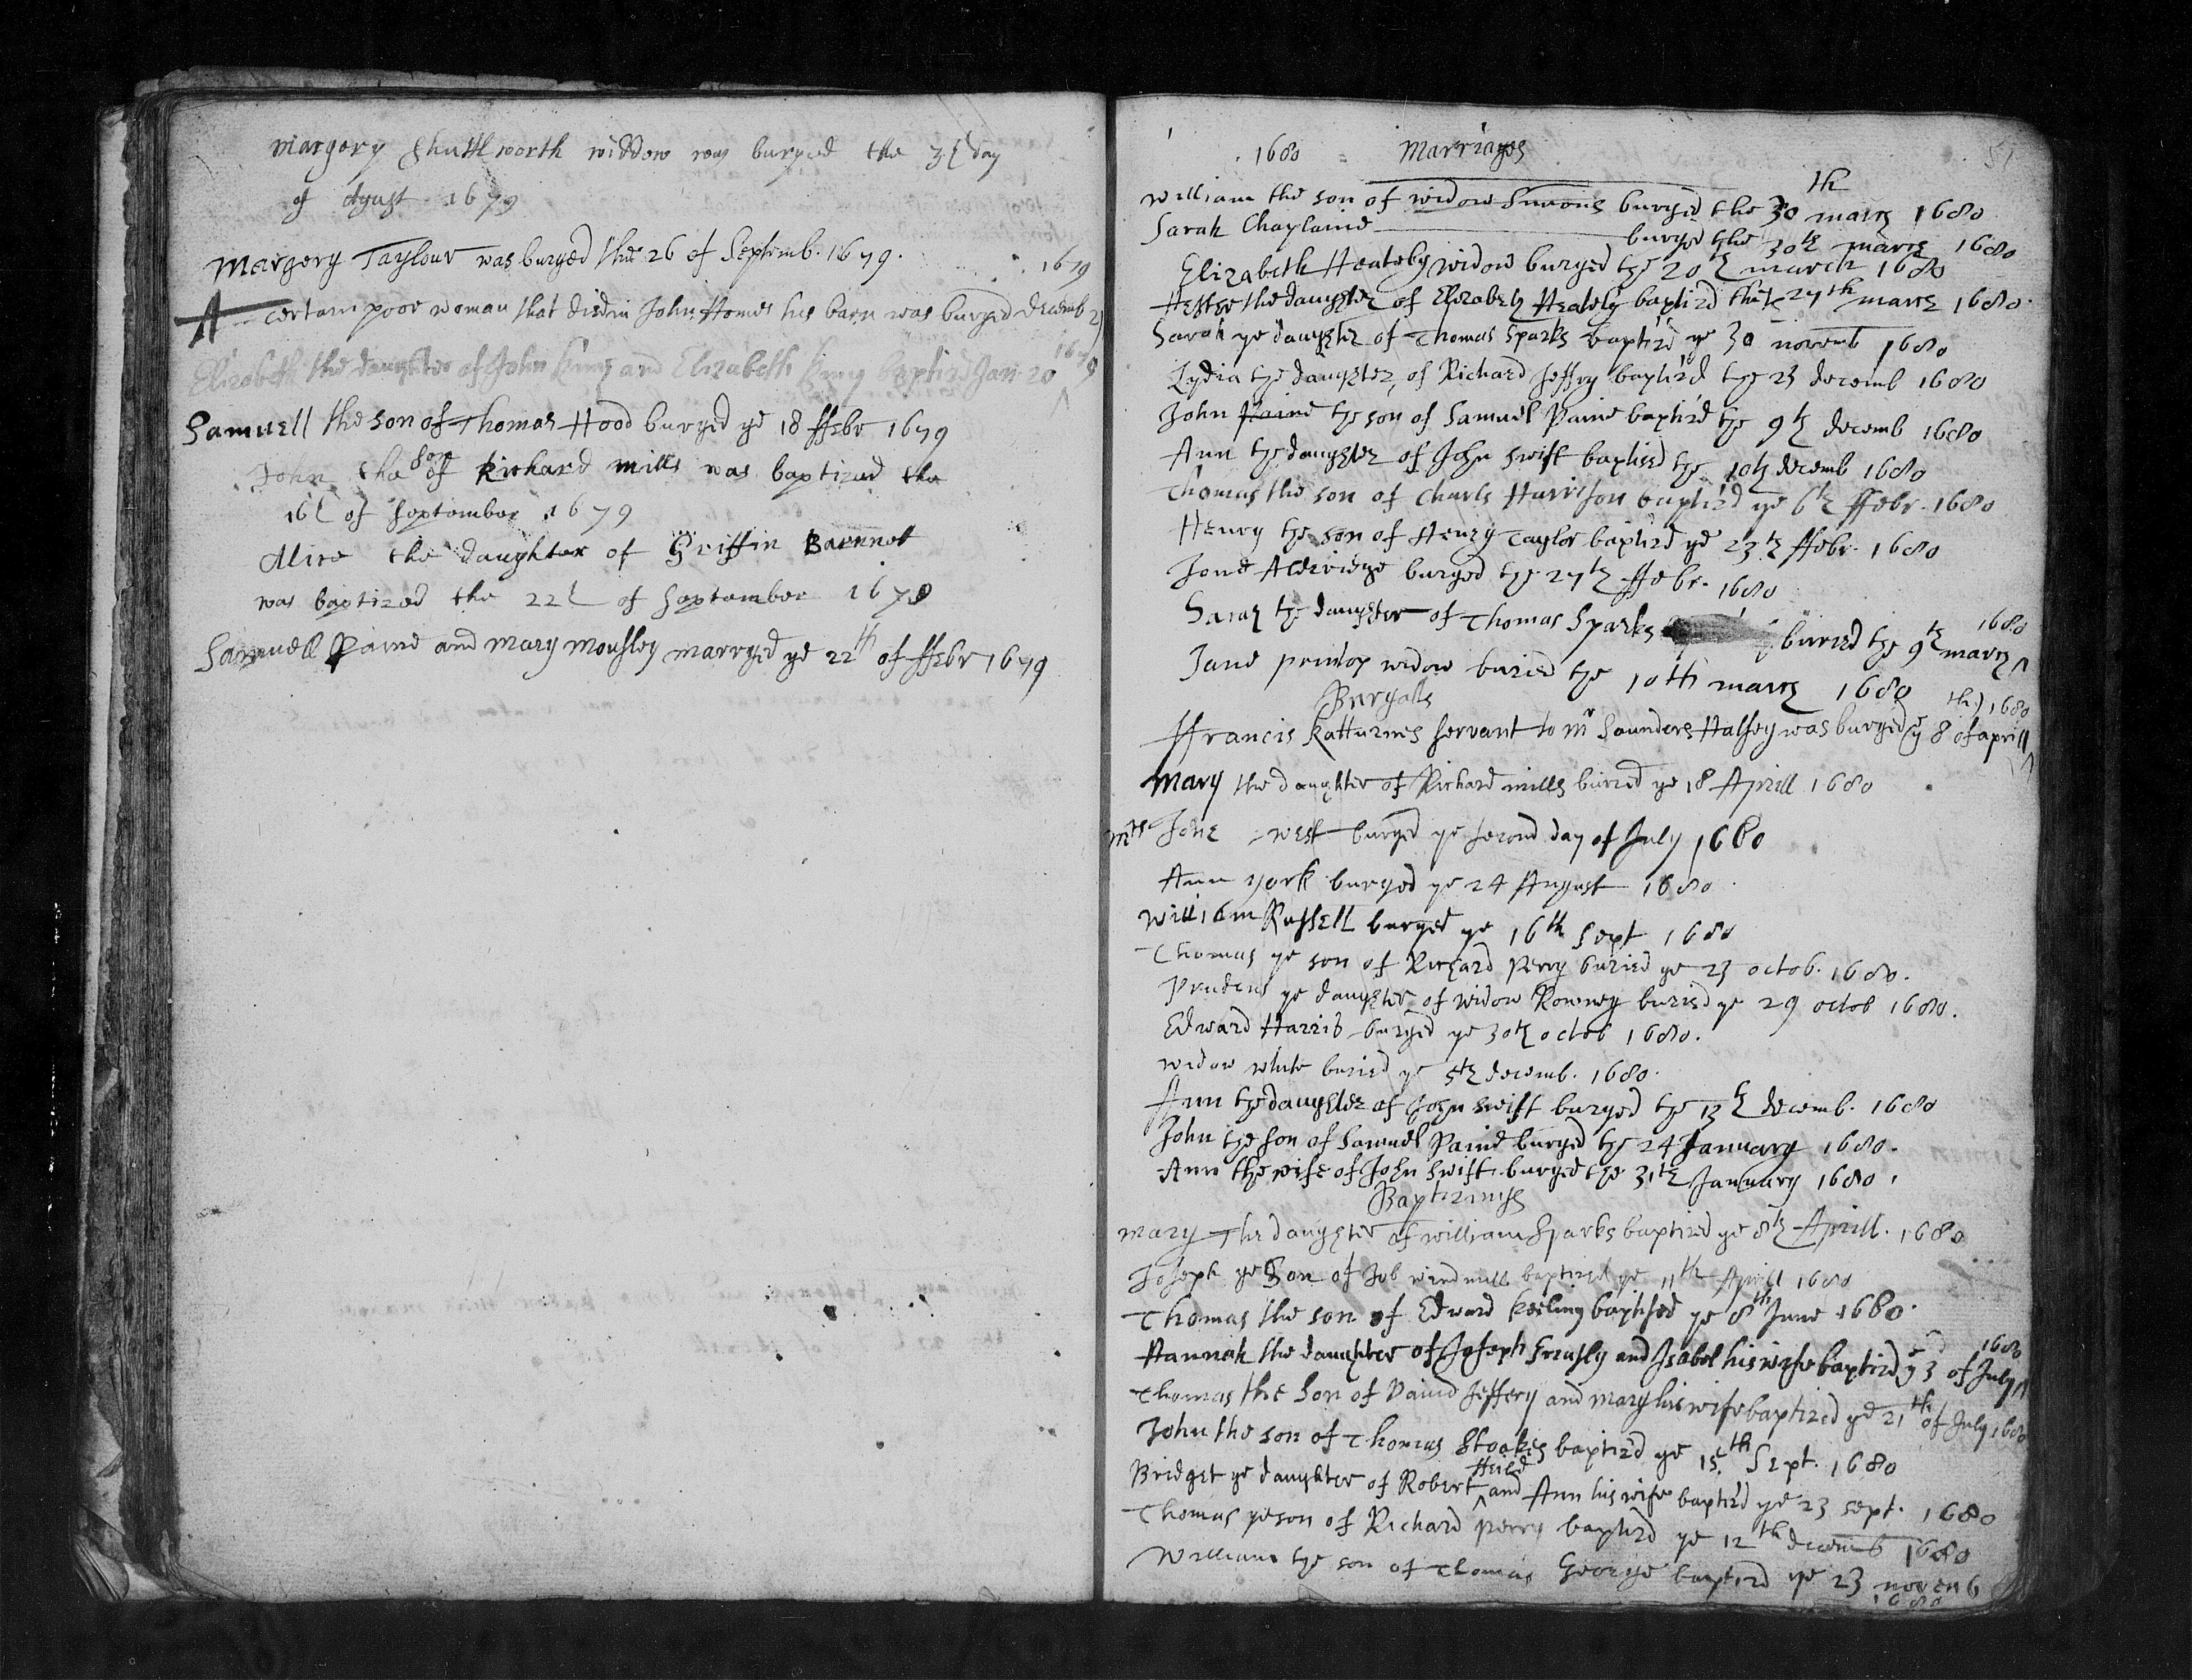 Margery Shuttlworth widdow was buryed the 3l day
of Agust 1679
Margery Taylour was buryed the 26 of Septemb. 1679.
A certain poor woman that died in John Homes his barn was buryed decemb
1679
Elizabeth the daughter of John and Elizabeth baptizd Jan 20
1679
Samuell the son of Thomas Hood buryed ye 18 ffebr 1679
John the son of Richard mills was baptized the
16l of September 1679
Alice the daughter of Griffin Barnnet
was baptized the 22l of September
Samuell Paine and mary moushley marryed ye 22th of ffebr 1679
1680 Marriages
51
William the son of widow buryed the 30th march 1680
Sarah Chaplaine buryed the 30th march 1680
Elizabeth Heateby widow buryed the 20th march 1680
the daughter of Elizabeth baptizd the 27th march 1680.
Sarah ye daughter of Thomas Sparks baptizd ye 30 novemb 1680
Lydia the daughter of Richard Jeffry baptizd the 23 decemb 1680
John Paine the son of Samuel Paine baptizd the 9th decemb 1680
Ann the daughter of John Swift baptised the 10th decemb 1680
Thomas the son of Charls Harrison baptizd ye 6th ffebr. 1680
Henry the son of Henry Taylor baptizd ye 23th ffebr. 1680
Jone Alderidge buryed the 27th ffebr. 1680
Sarah the daughter of Thomas Sparks buried the 9th march 1680
Jane widow buried the 10th march 1680
Buryalls
ffrancis Katturnes servant to Mr Saunders Halsey was buryed ye 8th of aprill 1680
Mary the daughter of Richard mills buried ye 18 Aprill 1680
Mrs Jone west buryed ye second day of July 1680
Ann york buryed ye 24 August 1680
William Russell buryed ye 16th Sept 1680
Thomas ye son of Richard Perry buried ye 23 octob. 1680.
Prudens ye daughter of widow Rowney buried ye 29 octob 1680.
Edward Harris buryed ye 30th octob 1680.
widow white buried ye 5th decemb. 1680.
Ann the daughter of John Swift buryed the 13th decemb. 1680
John the son of Samuel Paine buryed the 24 January 1680.
Ann the wife of John Swift buryed the 31th January 1680.
Baptizings
Mary The daughter of william Sparks baptized ye 8th Aprill. 1680
Joseph ye Son of Job windmill baptized ye 11th Aprill 1680
Thomas the son of Edward Keeling baptised ye 8th June 1680.
Hannah the daughter of Joseph and Isabel his wife baptizd ye 3d of July 1680
Thomas the Son of David Jeffery and mary his wife baptized ye 21th of July 1680
John the son of Thomas Stookes baptizd ye 15th Sept. 1680
Bridget ye daughter of Robert and Ann his wife baptizd ye 23 sept. 1680
Thomas ye son of Richard Perry baptizd ye 12th decemb 1680
William the son of Thomas George baptizd ye 23 novemb
1680